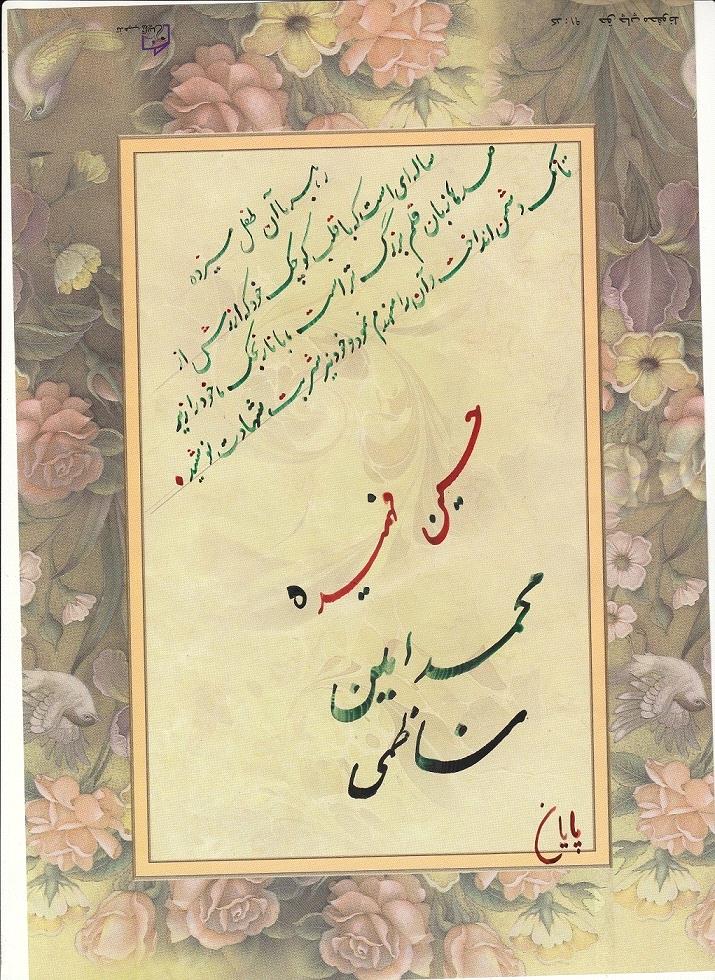 رهبر ما آن طفل سیزده
ساله‌ای است که با قلب کوچک خود که ارزش از
صدها زبان قلم بزرگ تر است با نارنجک خود را زیر
تانک دشمن انداخت و آن را منهدم نمود و خود نیز شربت شهادت نوشید
حسین
فهمیده
محمد امین
مناظمی
پایان
کد : ۹۱ حق چاپ محفوظ